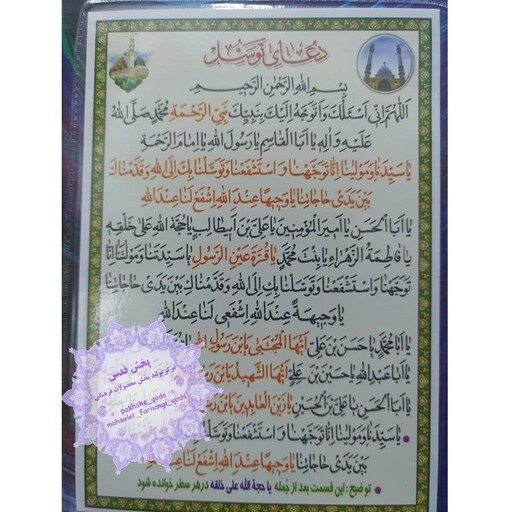 دعای توسل
بِسْمِ اللهِ الرَّحْمٰنِ الرَّحیمِ
اَللّهُمَّ اِنّی اَسْئَلُكَ وَاَتَوَجَّهُ اِلَیْكَ بِنَبِیِّكَ نَبِیِّ الرَّحْمَةِ مُحَمَّدٍ صَلَّی اللهُ
عَلَیْهِ وَالِهِ یا اَبَا الْقاسِمِ یا رَسُولَ اللهِ یا اِمامَ الرَّحْمَةِ
یا سَیِّدَنا وَمَوْلینا اِنّا تَوَجَّهْنا وَاسْتَشْفَعْنا وَتَوَسَّلْنا بِكَ اِلَی اللهِ وَقَدَّمْناكَ
بَیْنَ یَدَیْ حاجاتِنا یا وَجیهًا عِنْدَ اللهِ اِشْفَعْ لَنا عِنْدَ اللهِ
یا اَبَا الْحَسَنِ یا اَمیرَ الْمُؤْمِنینَ یا عَلِیَّ بْنَ اَبیطالِبٍ یا حُجَّةَ اللهِ عَلی خَلْقِهِ
یا فاطِمَةَ الزَّهْراءِ یا بِنْتَ مُحَمَّدٍ یا قُرَّةَ عَیْنِ الرَّسُولِ یا سَیِّدَتَنا وَمَوْلاتَنا اِنّا
تَوَجَّهْنا وَاسْتَشْفَعْنا وَتَوَسَّلْنا بِكِ اِلَی اللهِ وَقَدَّمْناكِ بَیْنَ یَدَیْ حاجاتِنا
یا وَجیهَةً عِنْدَ اللهِ اِشْفَعی لَنا عِنْدَ اللهِ
یا اَبا مُحَمَّدٍ یا حَسَنَ بْنَ عَلِیٍّ اَیُّهَا الْمُجْتَبی یَابْنَ رَسُولِ اللهِ
یا اَبا عَبْدِ اللهِ یا حُسَیْنَ بْنَ عَلِیٍّ اَیُّهَا الشَّهیدُ یَابْنَ
یا اَبَا الْحَسَنِ یا عَلِیَّ بْنَ الْحُسَیْنِ یا زَیْنَ الْعابِدینَ یَابْنَ
• یا سَیِّدَنا وَمَوْلینا اِنّا تَوَجَّهْنا وَاسْتَشْفَعْنا وَتَوَسَّلْنا
بَیْنَ یَدَیْ حاجاتِنا یا وَجیهًا عِنْدَ اللهِ اِشْفَعْ لَنا عِنْدَ اللهِ
• توضیح : این قسمت بعد از جمله یا حجة الله علی خلقه در هر سطر خوانده شود
پخش قدس
مرکز تولید پخش محصولات فرهنگی
pakhshe_qods
mahsolat_farhangi_qods